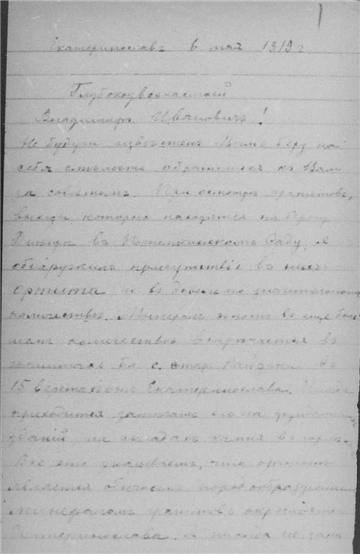 1
Екатеринославъ 6 мая 1919 г.
Глубокоуважаемый
Владимиръ Ивановичъ!
Не будучи извѣстенъ Вамъ беру на
себя смѣлость обратиться къ Вамъ
за совѣтомъ. При осмотрѣ гранитовъ,
выходы которыхъ находятся на берегу
Днѣпра въ Потемкинскомъ Саду, я
обнаружилъ присутствіе въ нихъ
ортита и въ довольно значительномъ
количествѣ. Минералъ этотъ въ еще боль-
шемъ количествѣ встрѣчается въ
гранитахъ с. Стар. Кайдаки въ
15 верстахъ отъ Екатеринослава.
приходится замѣчать его на
зданій на складахъ камня въ городѣ.
Все это указываетъ, что ортитъ
является обычнымъ породообразующимъ
минераломъ гранитовъ окрестностей
Екатеринослава, и